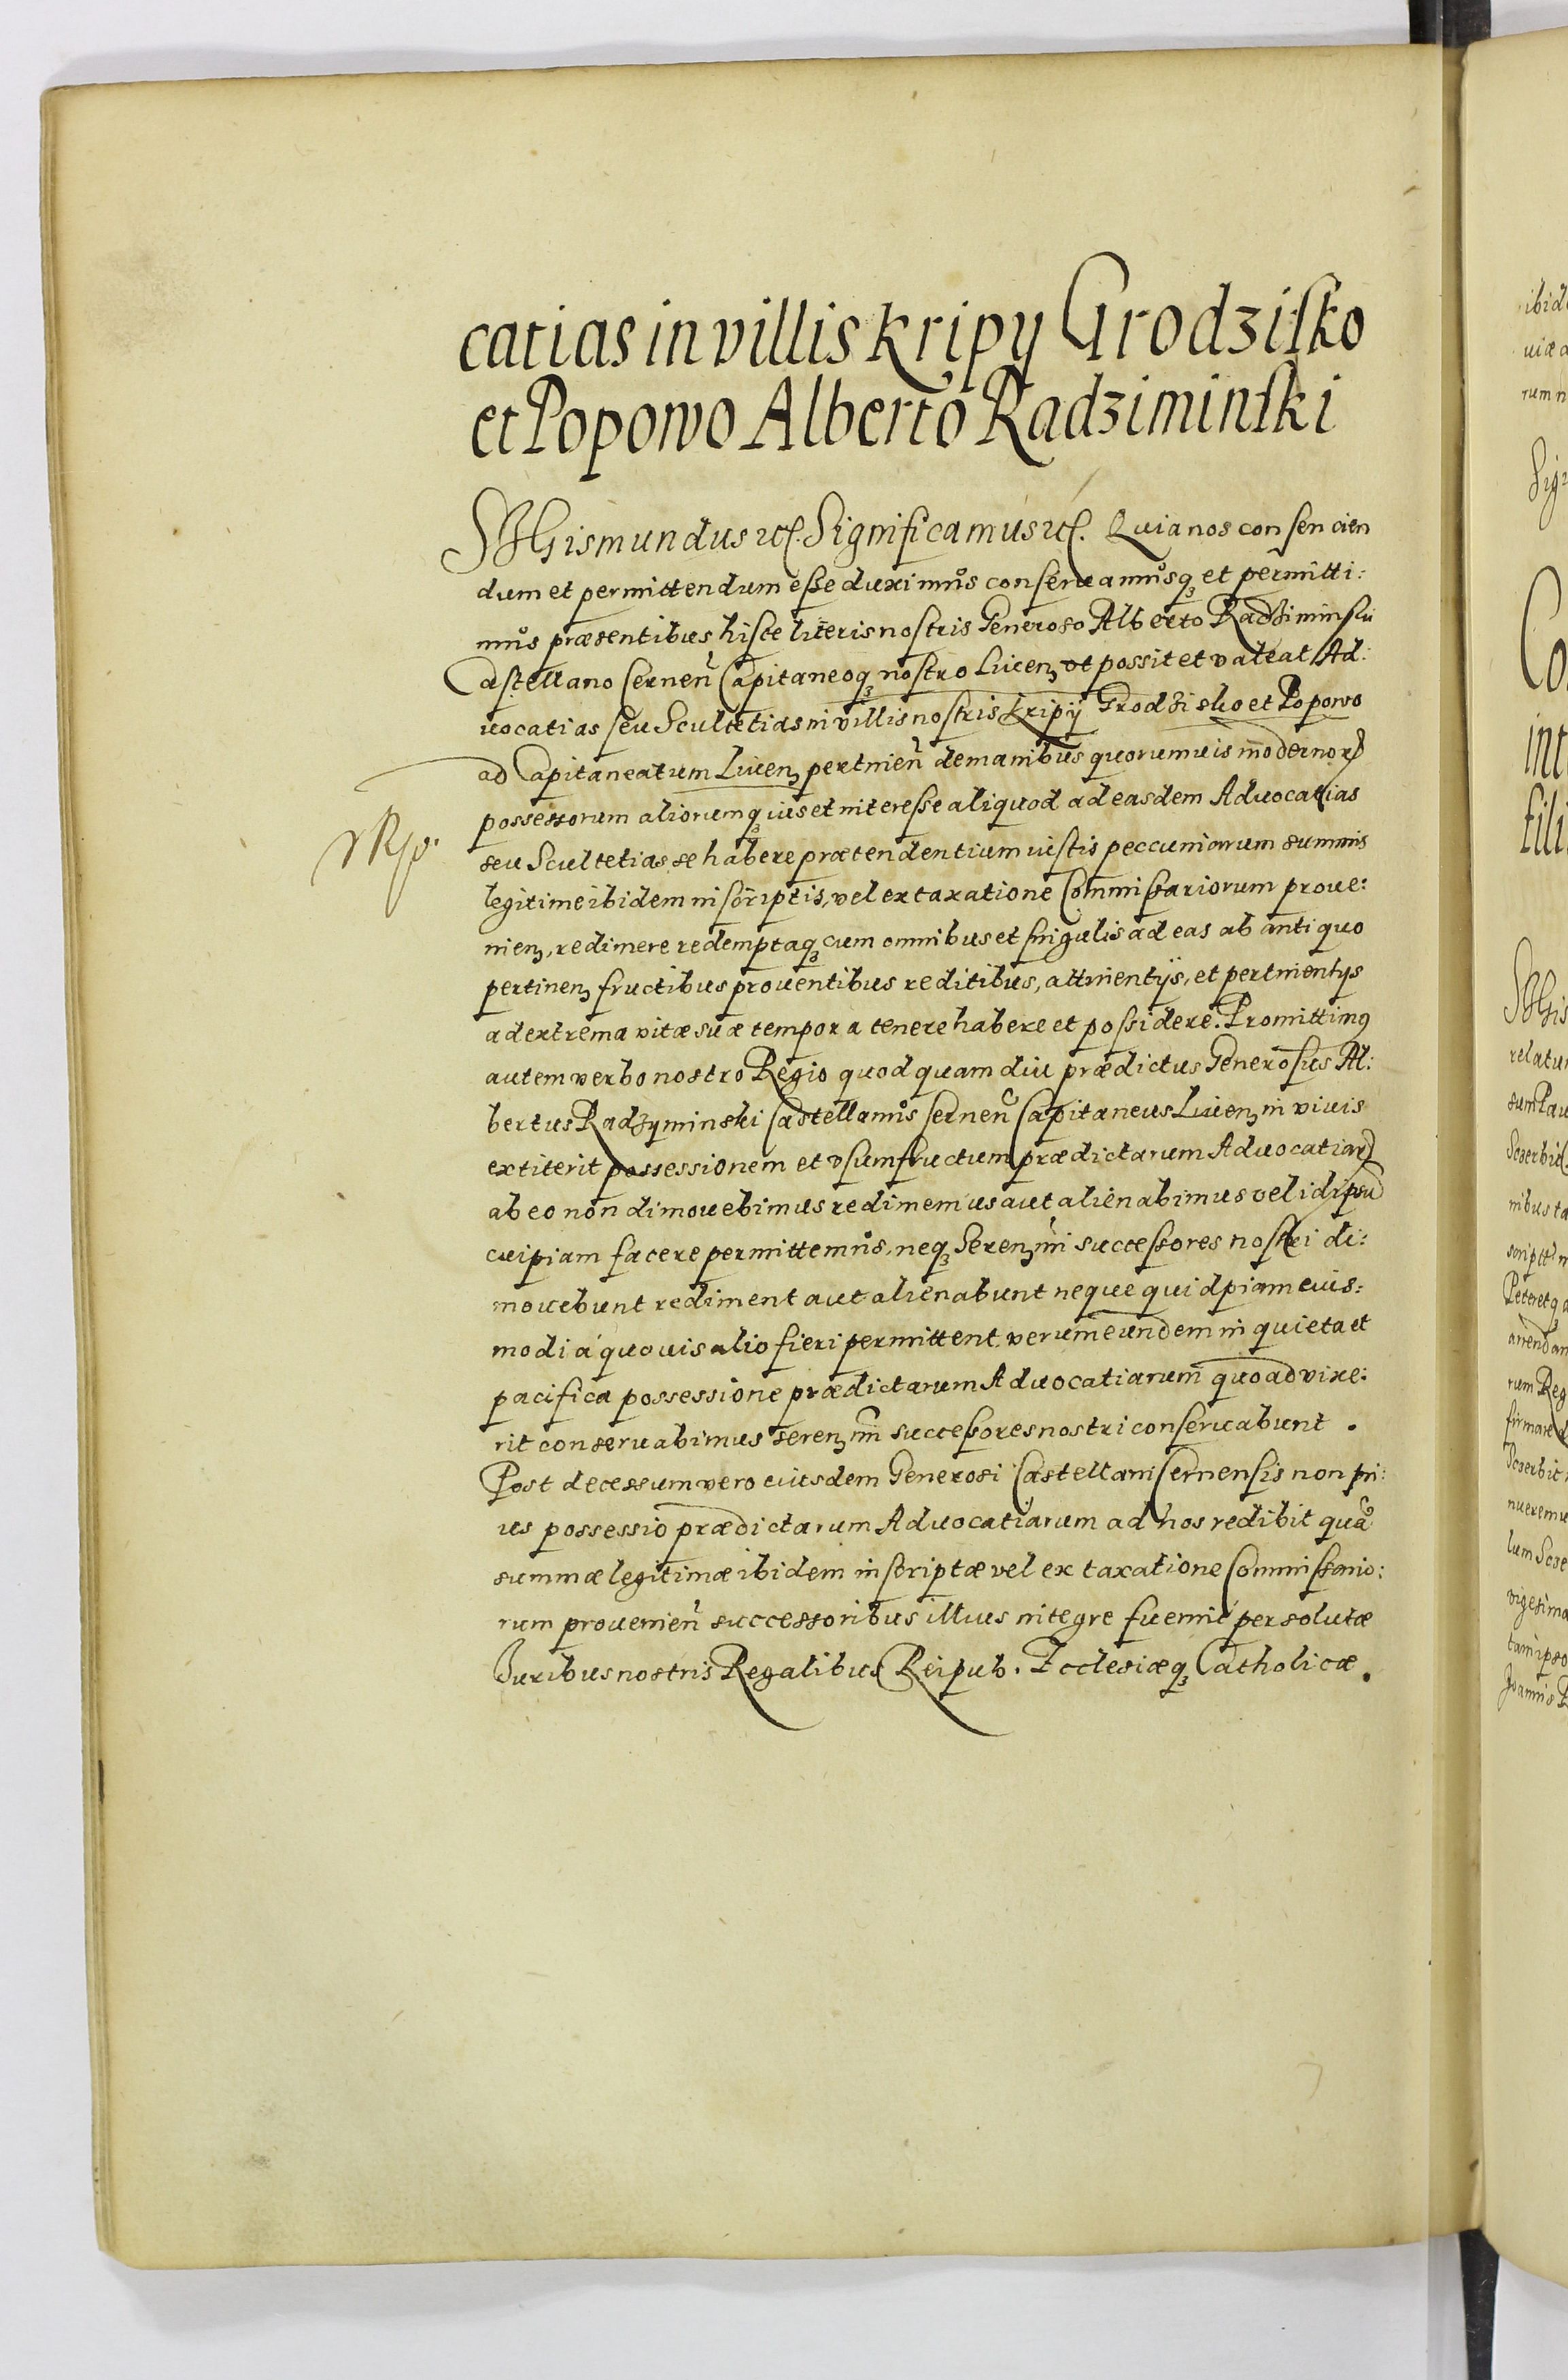 catias in villis Kripy Grodzisko
et Popowo Alberto Radziminski
SIGismundus etc. Significamus etc. Quia nos consencien
dum et permittendum esse duximus conservamusq3 et permitti:
mus præsentibus hisce literis nostris Generoso Alberto Radziminski
Castellano Sernen Capitaneoq3 nostro Liuen3 vt possit et valeat Ad:
uocatias seu Scultetias in villis nostris Kripij Grodzisko et Popowo
ad Capitaneatum Liuen3 pertinen de manibus quorumuis modernor
possessorum aliorumq3 ius et interesse aliquod ad easdem Aduocatias
seu Scultetias se habere prætendentium iustis peccuniarum summis
legitime ibidem inscriptis, vel ex taxatione Commissariorum proue:
nien3, redimere redemptaq3 cum omnibus et singulis ad eas ab antiquo
pertinen3 fructibus prouentibus reditibus, attinentijs, et pertinentys
ad extrema vitæ suæ tempora tenere habere et possidere. Promittimus
autem verbo nostro Regio quod quam diu prædictus Generosus Al:
bertus Radzyminski Castellanus Sernen Capitaneus Liuen3 in viuis
extiterit possessionem et vsumfructum prædictarum Aduocatiar
ab eo non dimouebimus redimemus aut alienabimus vel id ipsu
cuipiam facere permittemus, neq3 Seren3mi successores nostri di:
mouebunt rediment aut alienabunt neque quidpiam euis:
modi á quouis alio fieri permittent, verum eundem in quieta et
pacifica possessione prædictarum Aduocatiarum quoad vixe:
rit conseruabimus seren3mi successores nostri conseruabunt.
Post decessum vero eiusdem Generosi Castellani Sernensis non pri:
us possessio prædictarum Aduocatiarum ad nos redibit quā
summæ legitimæ ibidem inscriptæ vel ex taxatione Commissario:
rum prouenien successoribus illius integre fuerint persolutæ
Juribus nostris Regalibus Reipub. Ecclesiæq3 Catholicæ.